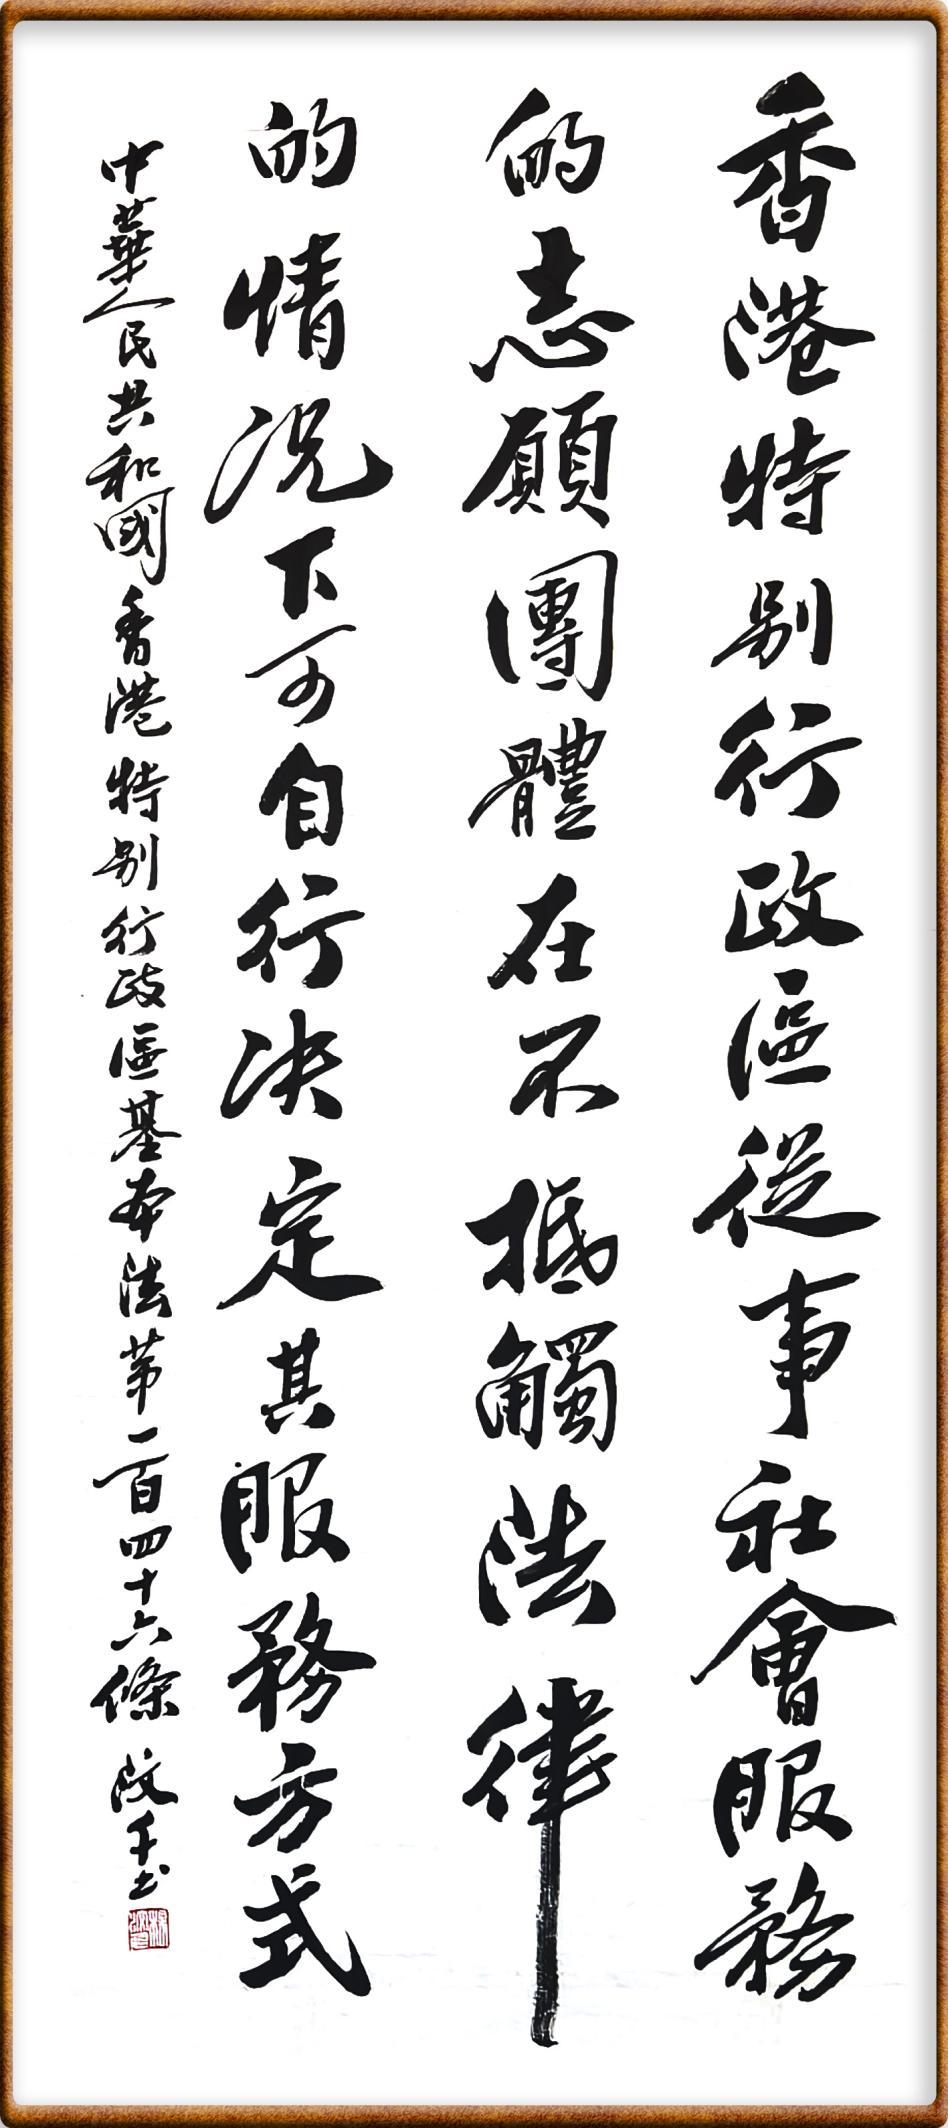 香港特别行政區從事社會服務
的志願團體在不抵觸法律
的情况下可自行决定其服務方式
中華人民共和國香港特别行政區基本法第一百四十六條 汶千书